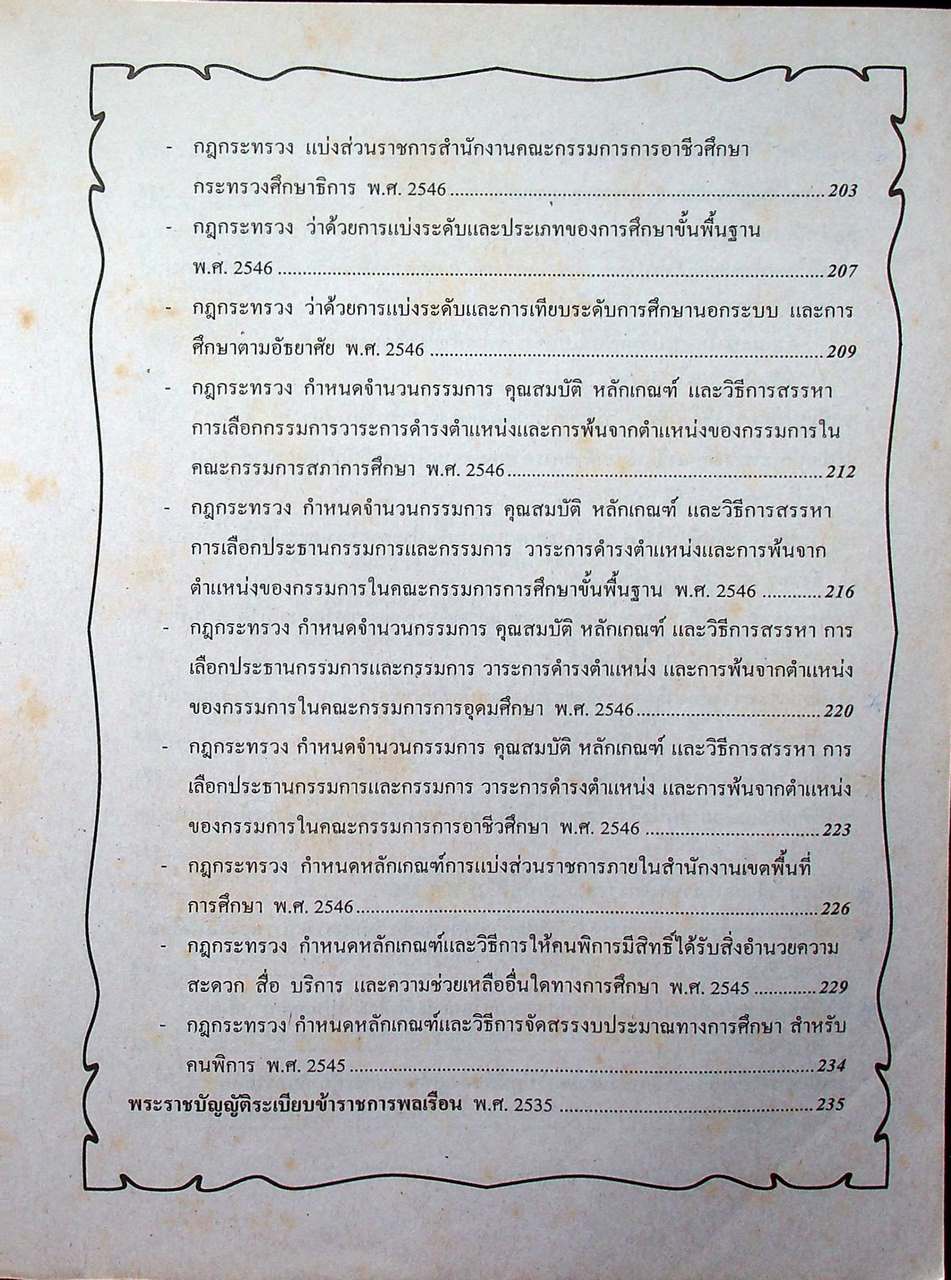 - กฎกระทรวง แบ่งส่วนราชการสำนักงานคณะกรรมการการอาชีวศึกษา
กระทรวงศึกษาธิการ พ.ศ. 2546 ........................................................ 203
- กฎกระทรวง ว่าด้วยการแบ่งระดับและประเภทของการศึกษาขั้นพื้นฐาน
พ.ศ. 2546 ........................................................ 207
- กฎกระทรวง ว่าด้วยการแบ่งระดับและการเทียบระดับการศึกษานอกระบบ และการ
ศึกษาตามอัธยาศัย พ.ศ. 2546 ........................................................ 209
- กฎกระทรวง กำหนดจำนวนกรรมการ คุณสมบัติ หลักเกณฑ์ และวิธีการสรรหา
การเลือกกรรมการวาระการดำรงตำแหน่งและการพ้นจากตำแหน่งของกรรมการใน
คณะกรรมการสภาการศึกษา พ.ศ. 2546 ........................................................ 212
- กฎกระทรวง กำหนดจำนวนกรรมการ คุณสมบัติ หลักเกณฑ์ และวิธีการสรรหา
การเลือกประธานกรรมการและกรรมการ วาระการดำรงตำแหน่งและการพ้นจาก
ตำแหน่งของกรรมการในคณะกรรมการการศึกษาขั้นพื้นฐาน พ.ศ. 2546 ............ 216
- กฎกระทรวง กำหนดจำนวนกรรมการ คุณสมบัติ หลักเกณฑ์ และวิธีการสรรหา การ
เลือกประธานกรรมการและกรรมการ วาระการดำรงตำแหน่ง และการพ้นจากตำแหน่ง
ของกรรมการในคณะกรรมการการอุดมศึกษา พ.ศ. 2546 ...................................... 220
- กฎกระทรวง กำหนดจำนวนกรรมการ คุณสมบัติ หลักเกณฑ์ และวิธีการสรรหา การ
เลือกประธานกรรมการและกรรมการ วาระการดำรงตำแหน่ง และการพ้นจากตำแหน่ง
ของกรรมการในคณะกรรมการการอาชีวศึกษา พ.ศ. 2546 .................................... 223
- กฎกระทรวง กำหนดหลักเกณฑ์การแบ่งส่วนราชการภายในสำนักงานเขตพื้นที่
การศึกษา พ.ศ. 2546 ........................................................ 226
- กฎกระทรวง กำหนดหลักเกณฑ์และวิธีการให้คนพิการมีสิทธิ์ได้รับสิ่งอำนวยความ
สะดวก สื่อ บริการ และความช่วยเหลืออื่นใดทางการศึกษา พ.ศ. 2545 ............. 229
- กฎกระทรวง กำหนดหลักเกณฑ์และวิธีการจัดสรรงบประมาณทางการศึกษา สำหรับ
คนพิการ พ.ศ. 2545 ........................................................ 234
พระราชบัญญัติระเบียบข้าราชการพลเรือน พ.ศ. 2535 .................................................... 235